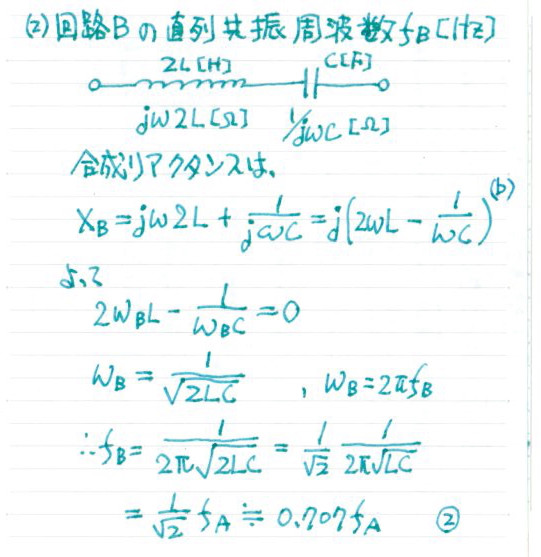 (2) 回路Bの直列共振周波数fB[Hz]
2L[H] C[F]
jω2L[Ω] 1/jωC[Ω]
合成リアクタンスは、
XB=jω2L+1/jωC=j(2ωL-1/ωC) (b)
よって
2ωBL-1/ωBC=0
ωB=1/√2LC , ωB=2πfB
∴fB=1/2π√2LC=1/√2 1/2π√LC
=1/√2 fA≒0.707fA ②